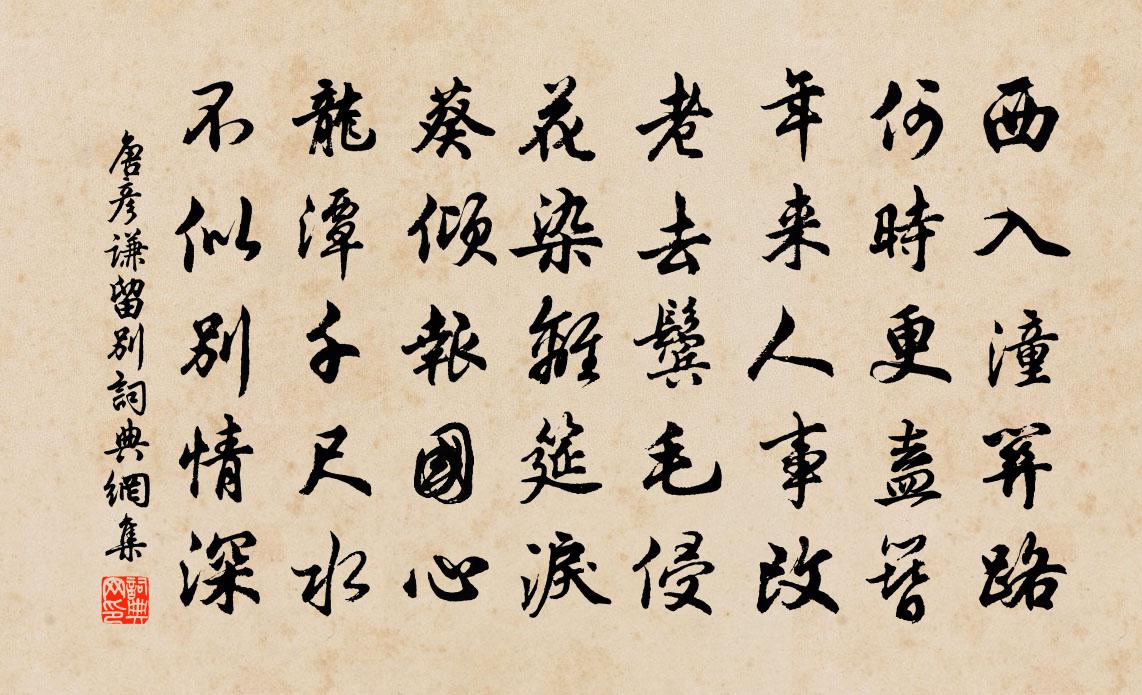 西入潼関路
何時更盍簪
年来人事改
老去鬢毛侵
花染離筵淚
葵傾報國心
龍潭千尺水
不似別情深
唐彦謙留別詞典網集
詞典
网印